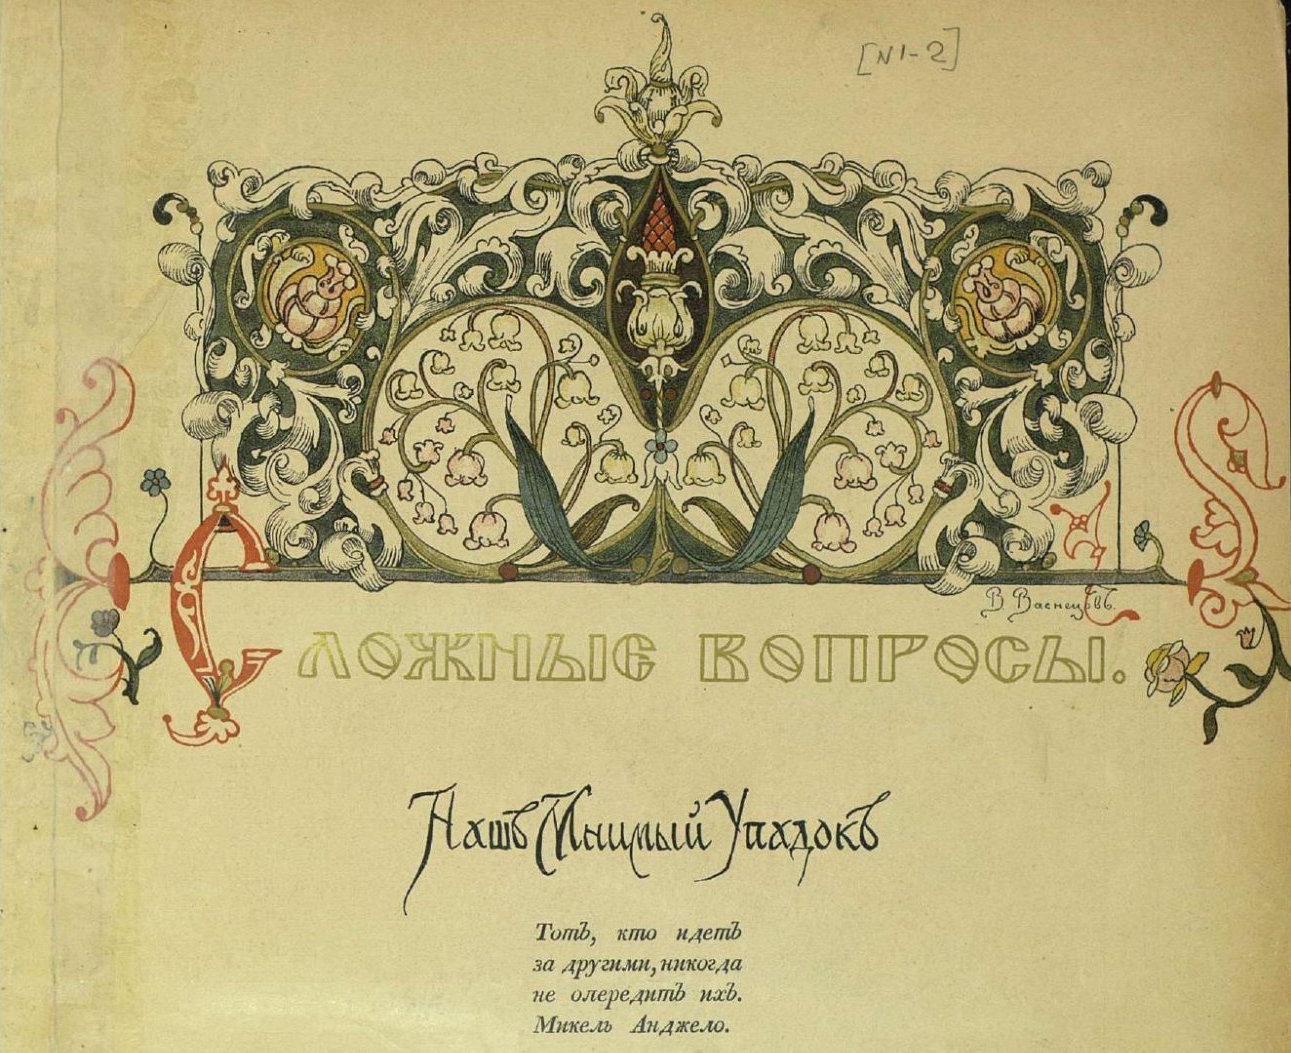 [N1-2]
В Васнецовъ.
Сложные вопросы.
Нашъ Мнимый Упадокъ
Тотъ, кто идетъ
за другими, никогда
не опередитъ ихъ.
Микель Анджело.